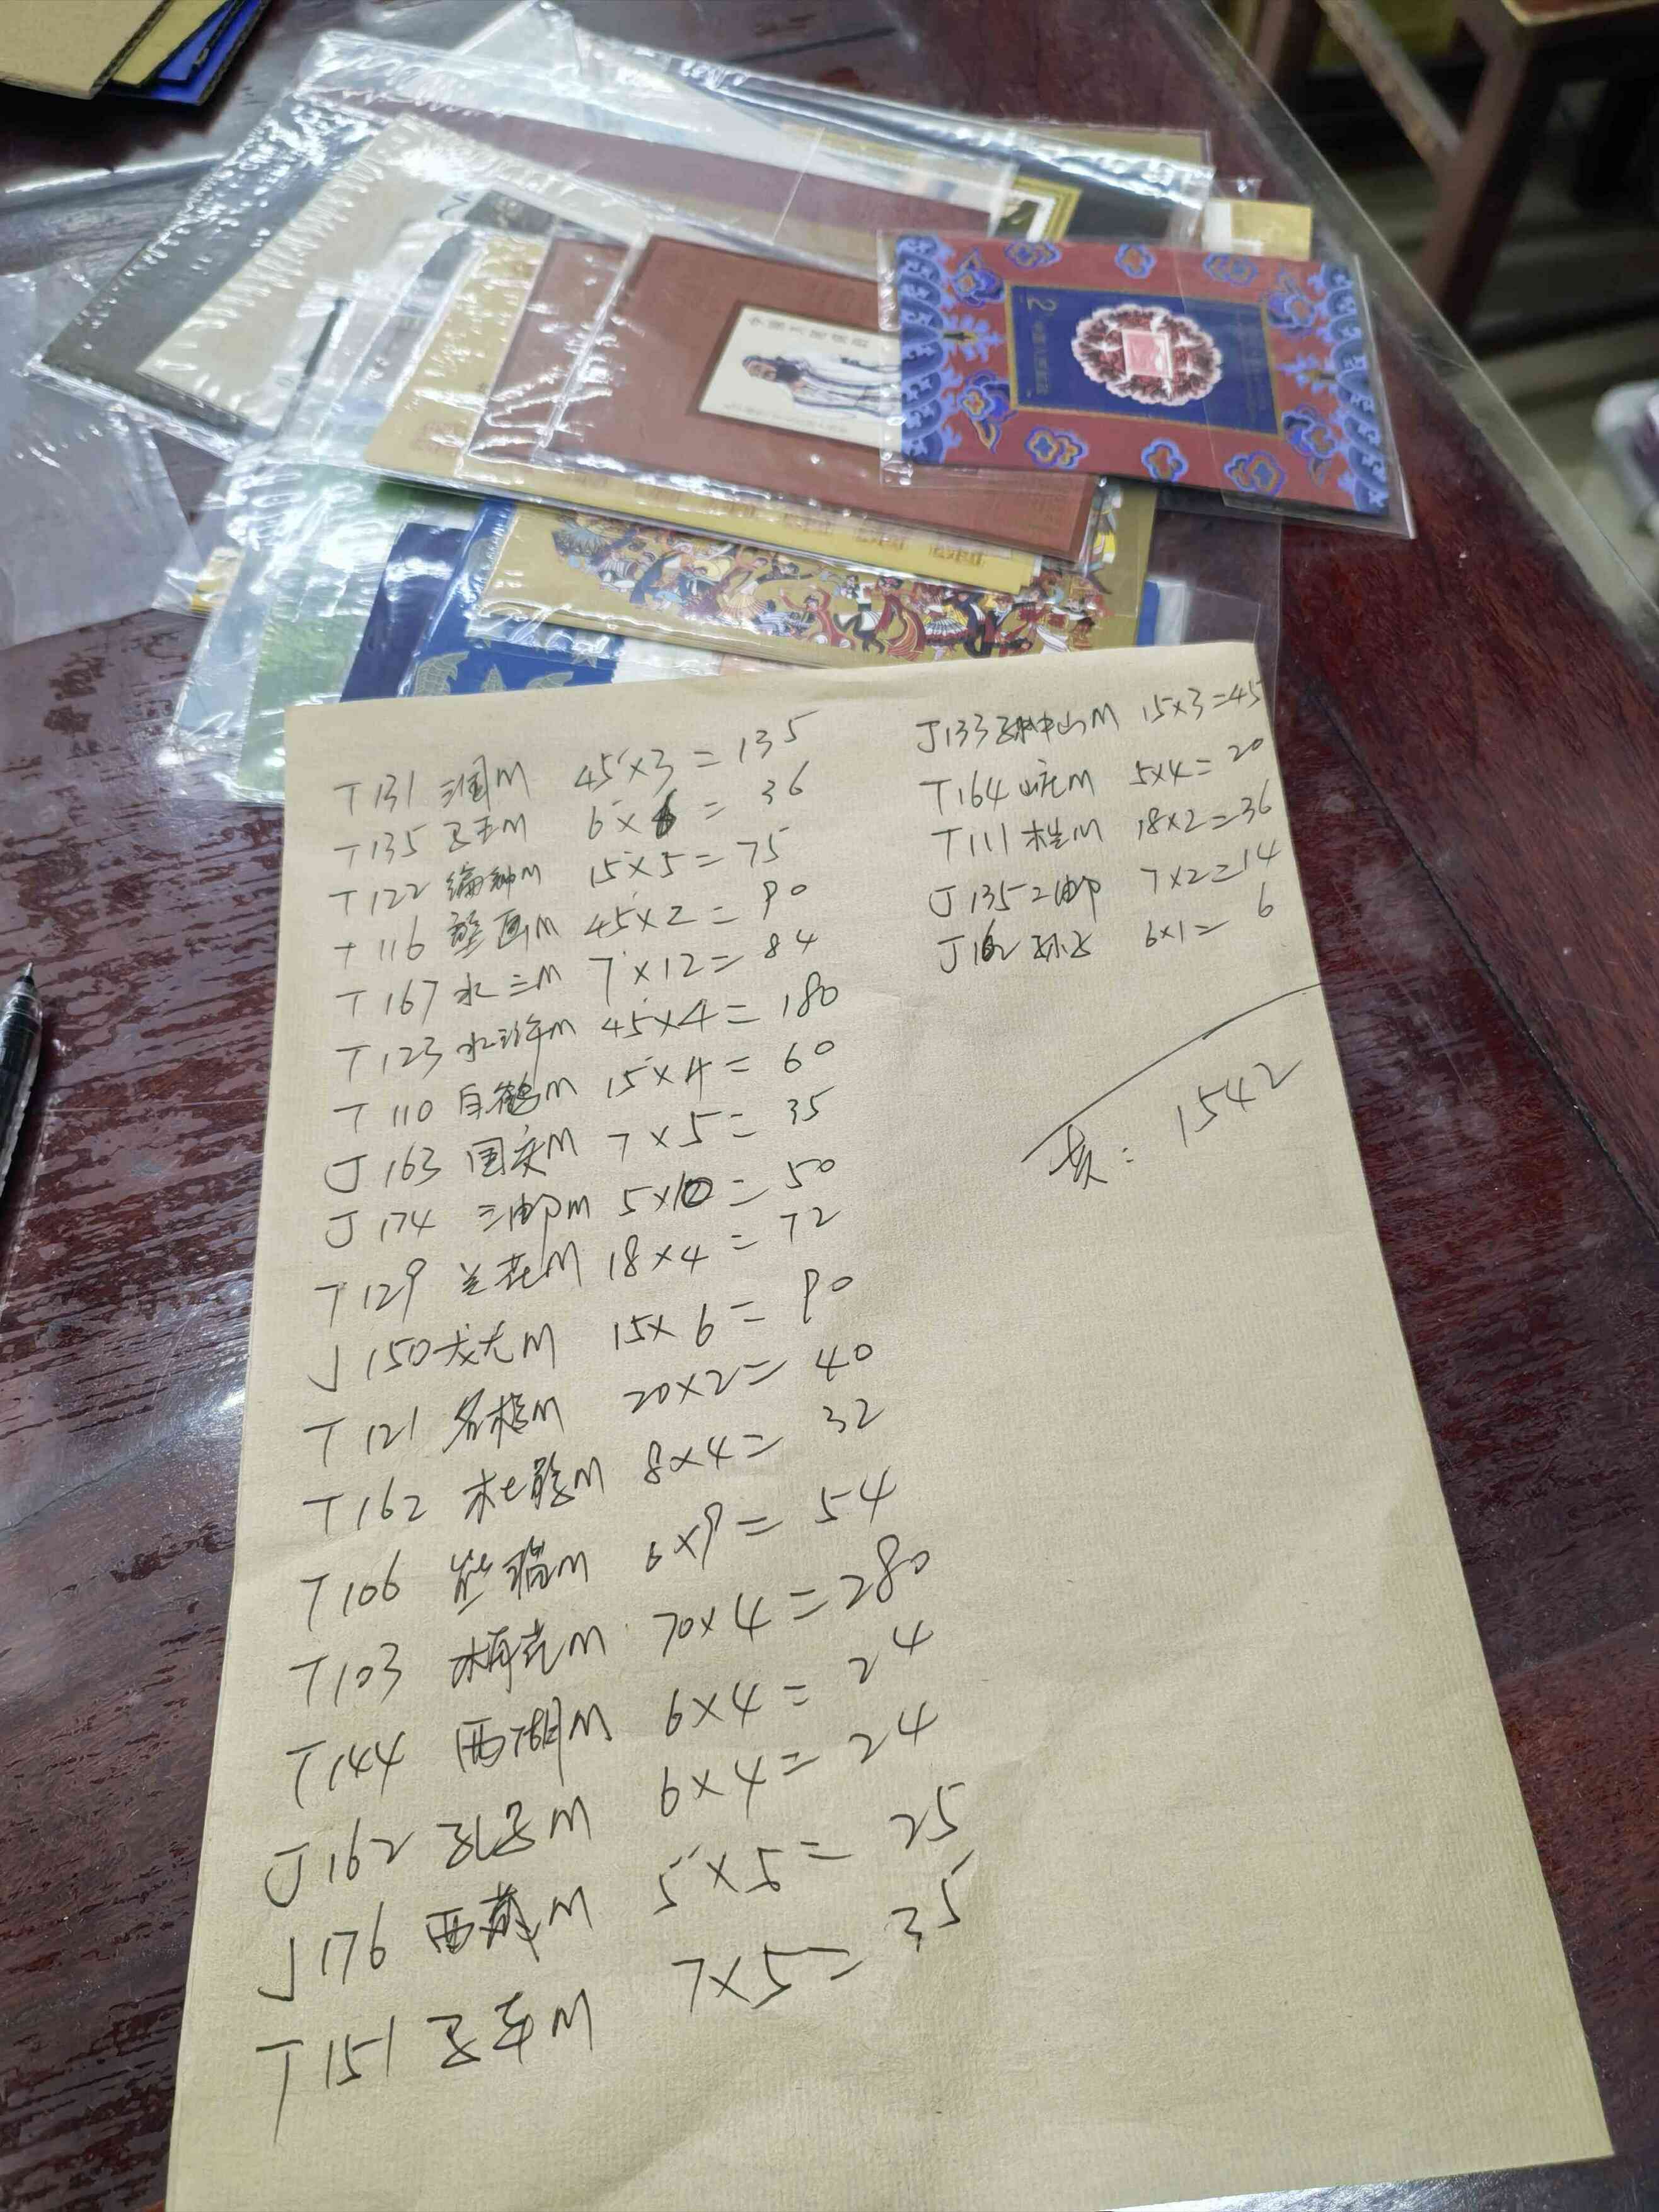 T131 三国M 45×3=135
T135 马王M 6×6=36
T122 编钟M 15×5=75
T116 壁画M 45×2=90
T167 水三M 7×12=84
T123 水浒M 45×4=180
T110 白鹤M 15×4=60
J163 国庆M 7×5=35
J174 三邮M 5×10=50
T129 兰花M 18×4=72
J150 戈尤M 15×6=90
T121 名楼M 20×2=40
T162 杜鹃M 8×4=32
T106 熊猫M 6×9=54
T103 梅花M 70×4=280
T144 西湖M 6×4=24
J162 孔子M 6×4=24
J176 西藏M 5×5=25
T151 马车M 7×5=35
J133 孙中山M 15×3=45
T164 山庄M 5×4=20
T111 木兰M 18×2=36
J135 二邮 7×2=14
J162 孔子 6×1=6
共: 1542
2